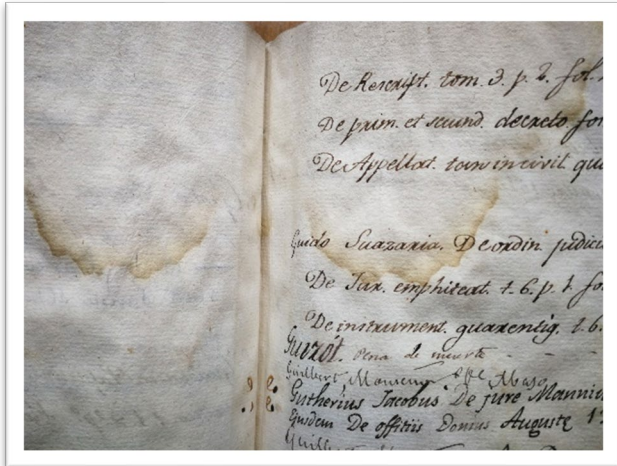 De Rescript. tom. 3. p. 2. fol.
De prim. et secund. decreto fo
De Appellat. tam in civil. qu
Guido Suazaria. De ordin. judici
De Jur. emphiteat. t. 6. p. 1. fo
De instrument. guarentig. t. 6.
Guizot. Pena de muerte - -
Guilbert Monseñor
Gutherius Jacobus De jure Manni
Ejusdem De offitiis Domus Augustę 1
Guilb